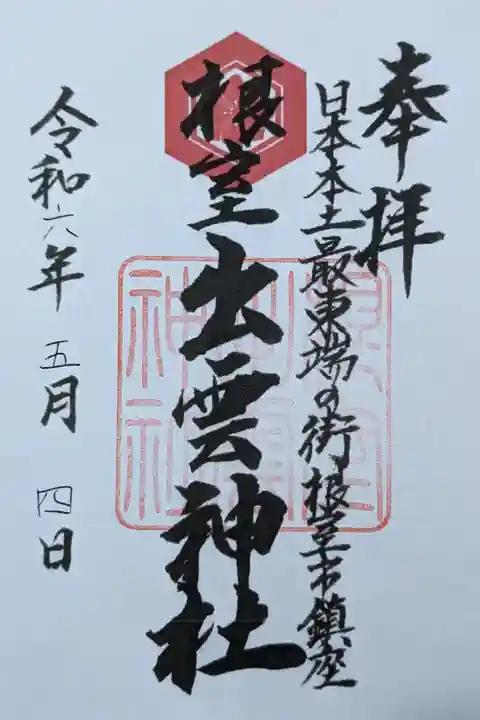 奉拝
日本本土最東端の街根室市鎮座
根室出雲神社
根室出雲神社
令和六年 五月 四日